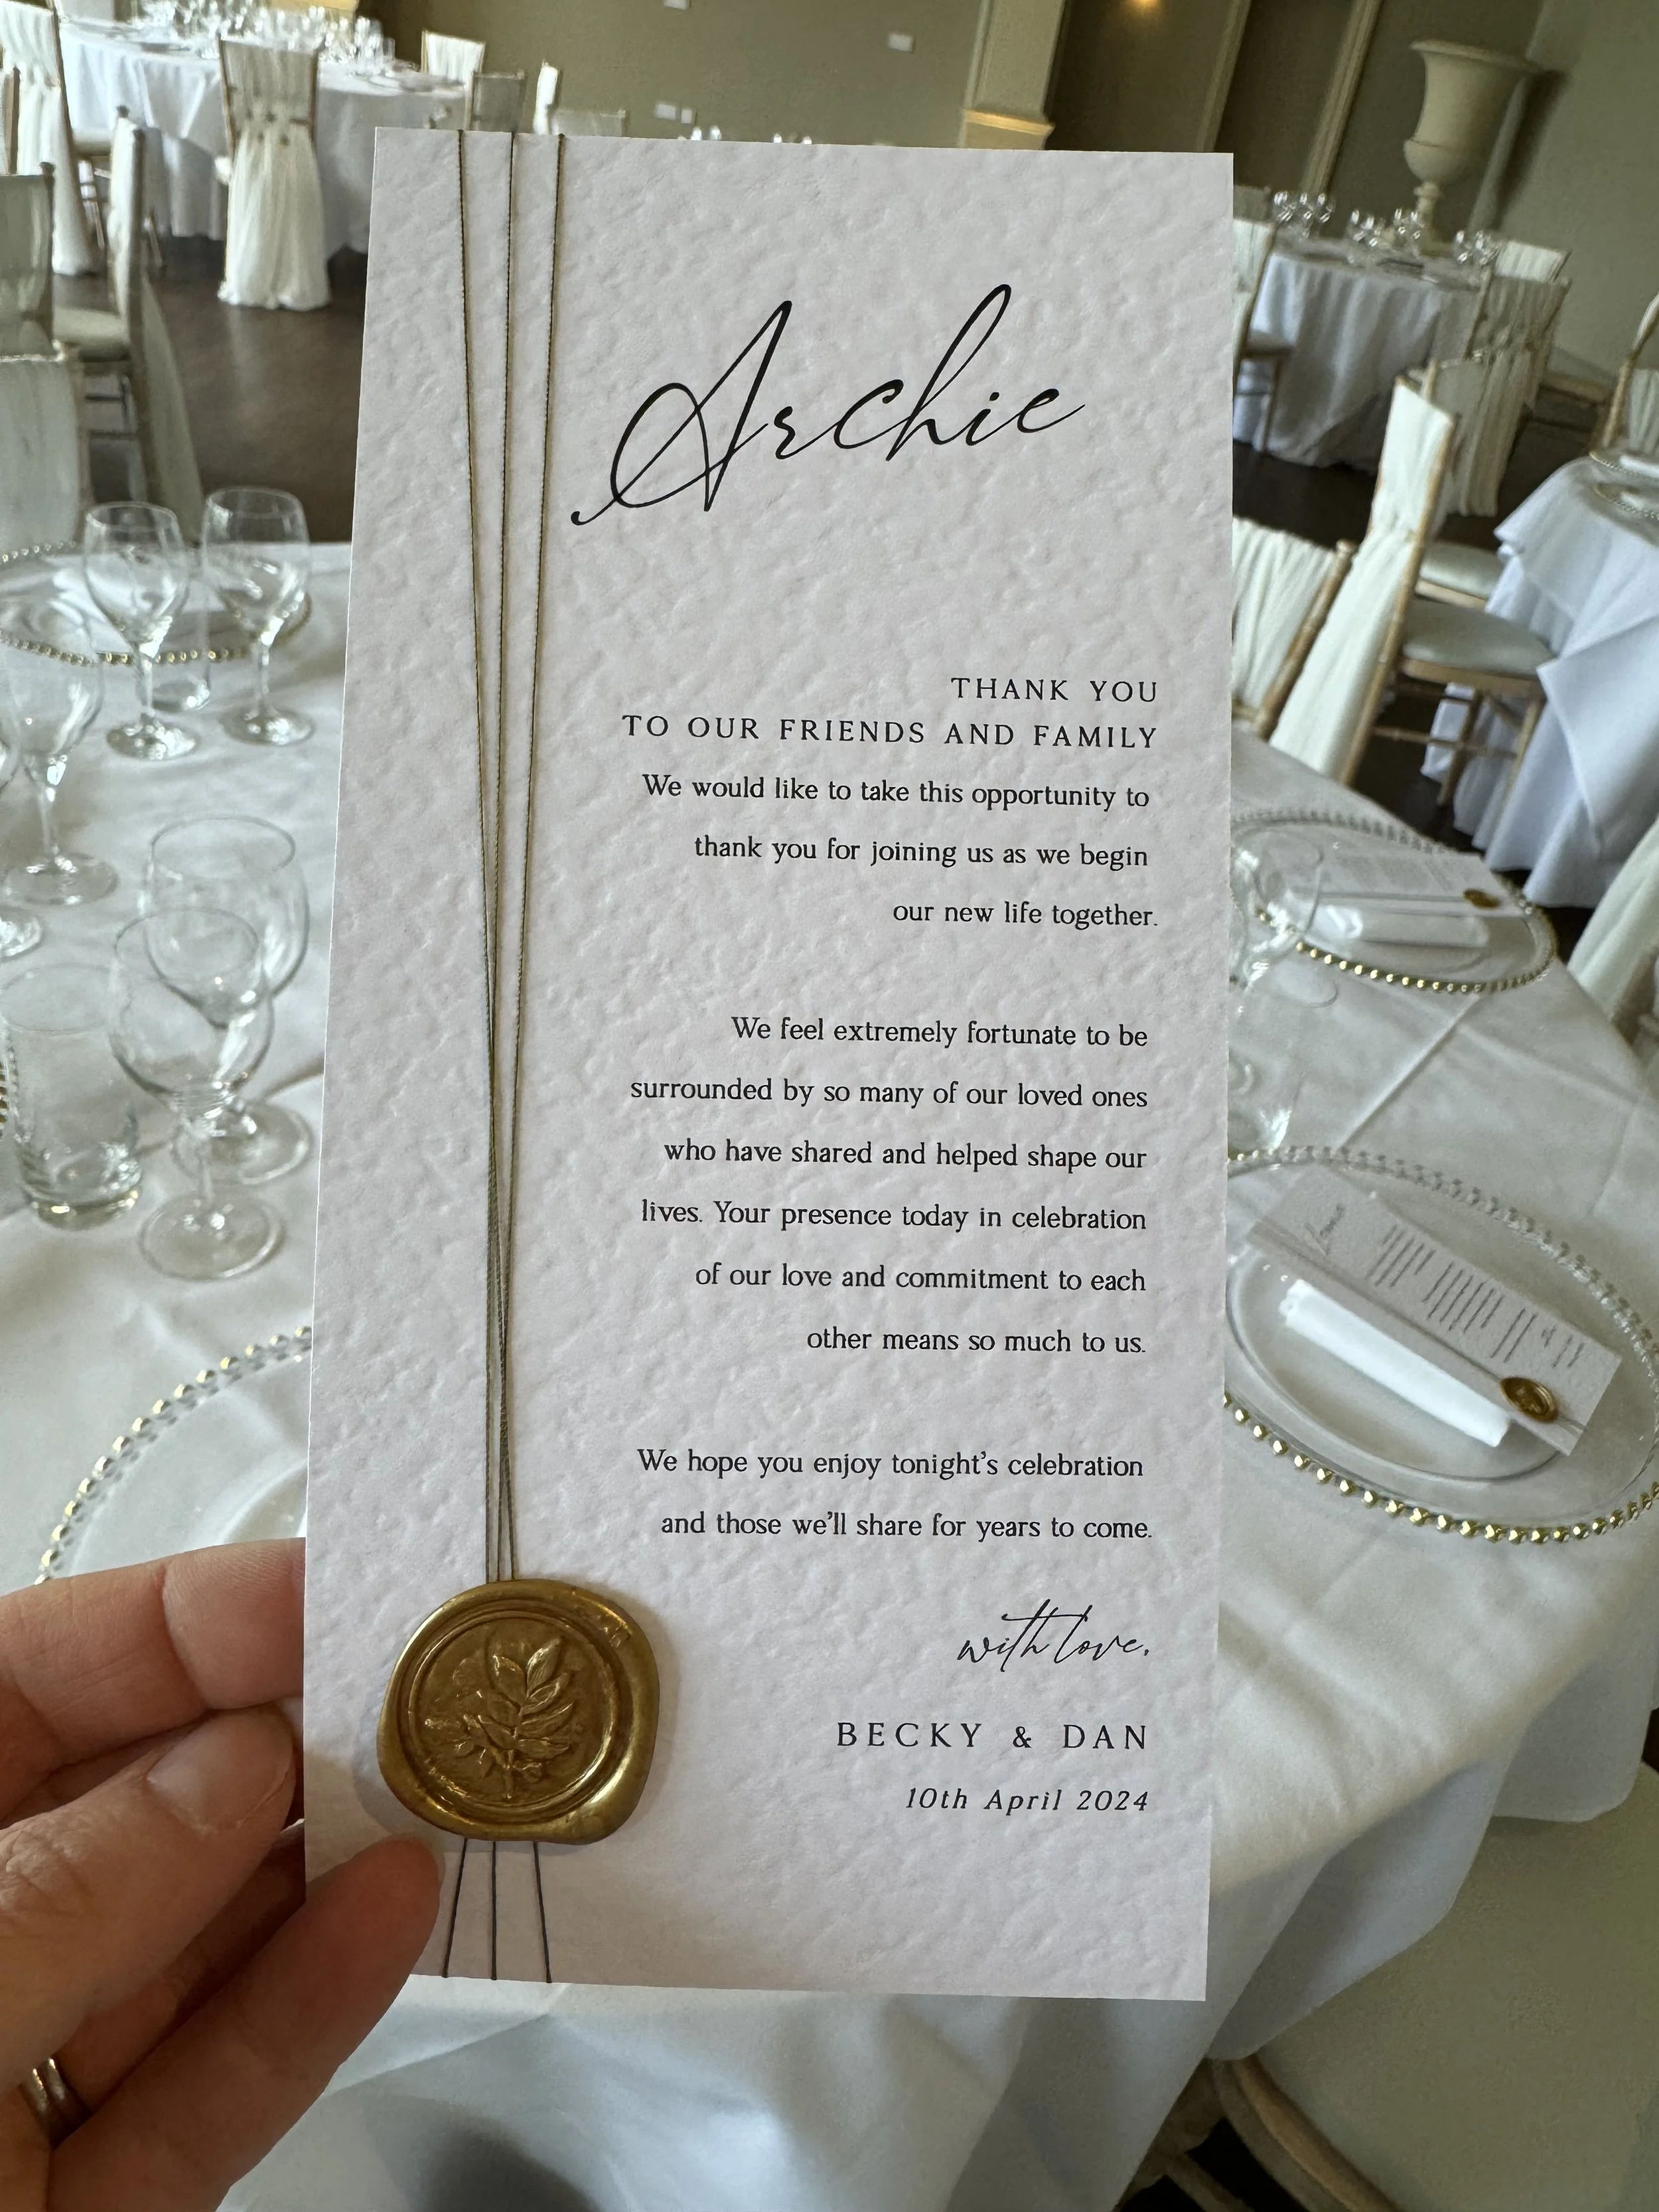 Archie
THANK YOU
TO OUR FRIENDS AND FAMILY
We would like to take this opportunity to
thank you for joining us as we begin
our new life together.
We feel extremely fortunate to be
surrounded by so many of our loved ones
who have shared and helped shape our
lives. Your presence today in celebration
of our love and commitment to each
other means so much to us.
We hope you enjoy tonight's celebration
and those we'll share for years to come.
with love,
BECKY & DAN
10th April 2024